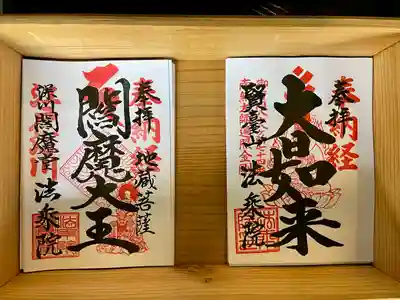 奉拝
納経
大日如来
法乗院
奉拝
納経
地蔵菩薩
閻魔大王
深川閻魔堂
法乗院